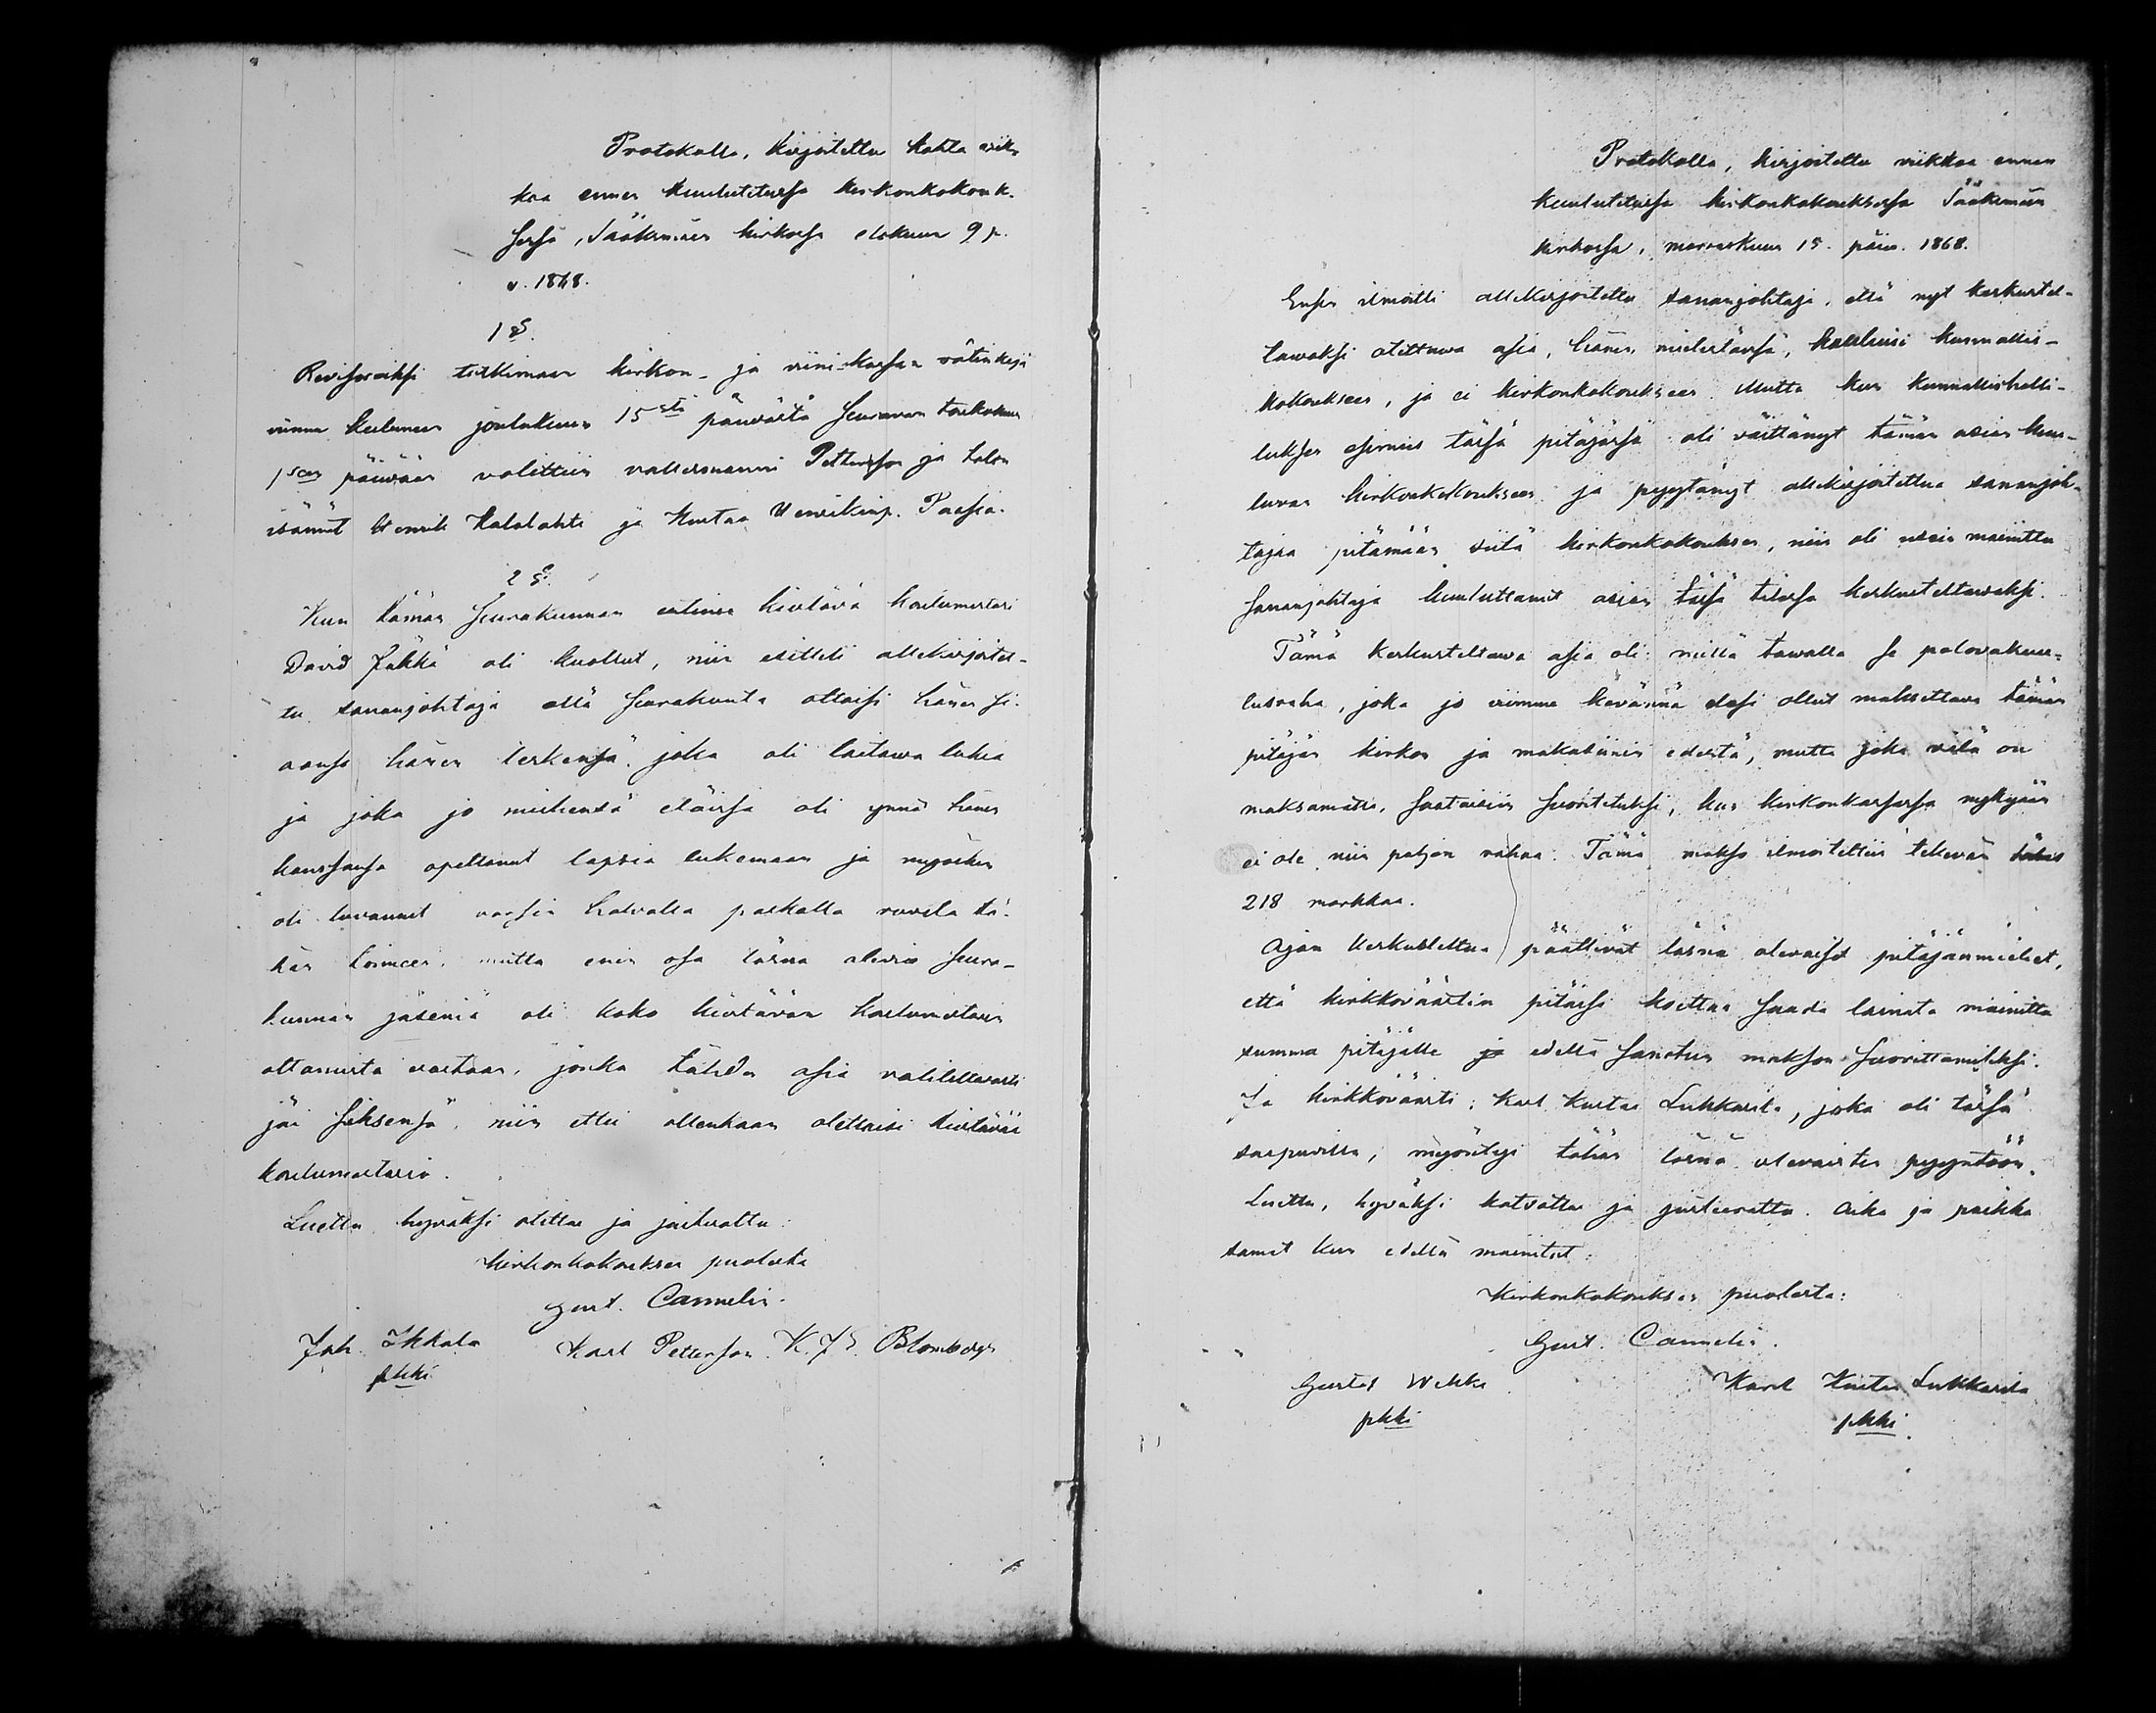 Protokolla, kirjoitettu kahta wiik-
koa ennen kuulutetussa kirkonkokouk-
sessa, Sääksmäen kirkossa elokuun 9 p.
v. 1868.
1 §.
Revisoreiksi tutkimaan kirkon- ja viini-kassan rätinkejä
viime kuluneen joulukuun 15sta päivästä seuraavan toukokuun
1seen päivään valittiin vallesmanni Pettersson ja talon
isännät Henrik Kalalahti ja Kustaa Henrikinp. Paasia.
2 §.
Kun tämän seurakunnan entinen kiertävä koulumestari
David Jäkkä oli kuollut, niin esitteli allekirjoitet-
tu sananjohtaja että seurakunta ottaisi hänen si-
aansa hänen leskensä, joka oli taitava lukia
ja joka jo miehensä eläissä oli ynnä hänen
kanssansa opettanut lapsia lukemaan ja nytkin
oli luvannut varsin halvalla palkalla ruveta tä-
hän toimeen, mutta enin osa läsnä olevia seura-
kunnan jäseniä oli koko kiertävän koulumestarin
ottamista vastaan, jonka tähden asia valitettavasti
jäi siksensä, niin ettei ollenkaan otettaisi kiertävää
koulumestaria.
Luettu, hyväksi otettu ja justerattu:
Kirkonkokouksen puolesta
Gust. Cannelin.
Joh. Ikkala Karl Pettersson. K. J. Blomberg
pkki
Protokolla, kirjoitettu viikkoa ennen
kuulutetussa kirkonkokouksessa Sääksmäen
kirkossa, marraskuun 15. päiv. 1868.
Ensin ilmoitti allekirjoitettu sananjohtaja, että nyt keskustel-
tavaksi otettava asia, hänen mielestänsä, kuuluisi kunnallis-
kokoukseen, ja ei kirkonkokoukseen. Mutta kun kunnallishalli-
tuksen esimies tässä pitäjässä oli väittänyt tämän asian kuu-
luvan kirkonkokoukseen ja pyytänyt allekirjoitettua sananjoh-
tajaa pitämään siitä kirkonkokouksen, niin oli usein mainittu
sananjohtaja kuuluttanut asian tässä tilassa keskusteltavaksi.
Tämä keskusteltava asia oli: millä tavalla se palovakuu-
tusraha, joka jo viimme kevännä olisi ollut maksettava tämän
pitäjän kirkon ja makasiinin edestä, mutta joka vielä on
maksamatta, saataisiin suoritetuksi, kun kirkonkassassa nykyään
ei ole niin paljon rahaa. Tämä maksu ilmoitettiin tekevän
218 markkaa.
Asian keskusteltua päättivät läsnä olevaiset pitäjänmiehet,
että kirkkoväärtin pitäisi koettaa saada lainata mainittu
summa pitäjälle ja edellä sanotun maksun suorittamiseksi.
Ja kirkkoväärti: Karl Kustaa Lukkarila, joka oli tässä
saapuvilla, myöntyi tähän läsnä olevaisten pyyntöön.
Luettu, hyväksi katsottu ja justeerattu. Aika ja paikka
samat kun edellä mainitut:
Kirkonkokouksen puolesta:
Gust. Cannelin.
Gustaf Wekka Karl Kustaa Lukkarila
pkki pkki